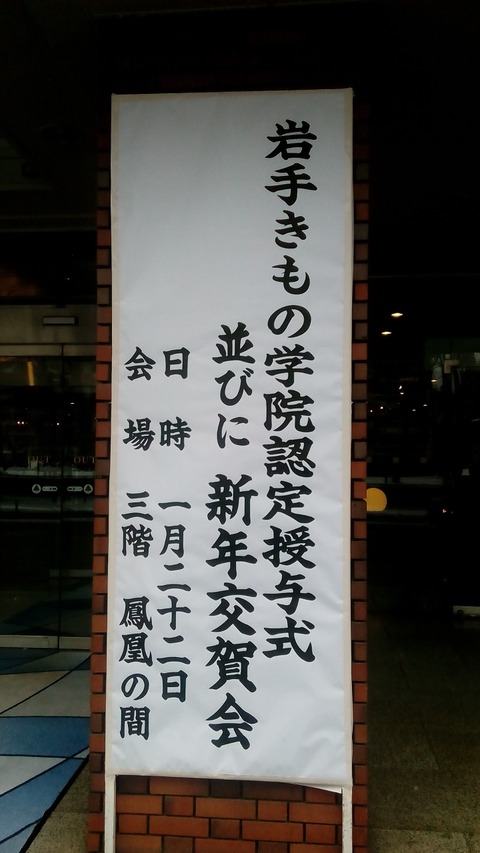 岩手きもの学院認定授与式
並びに 新年交賀会
日時 一月二十二日
会場 三階 鳳凰の間